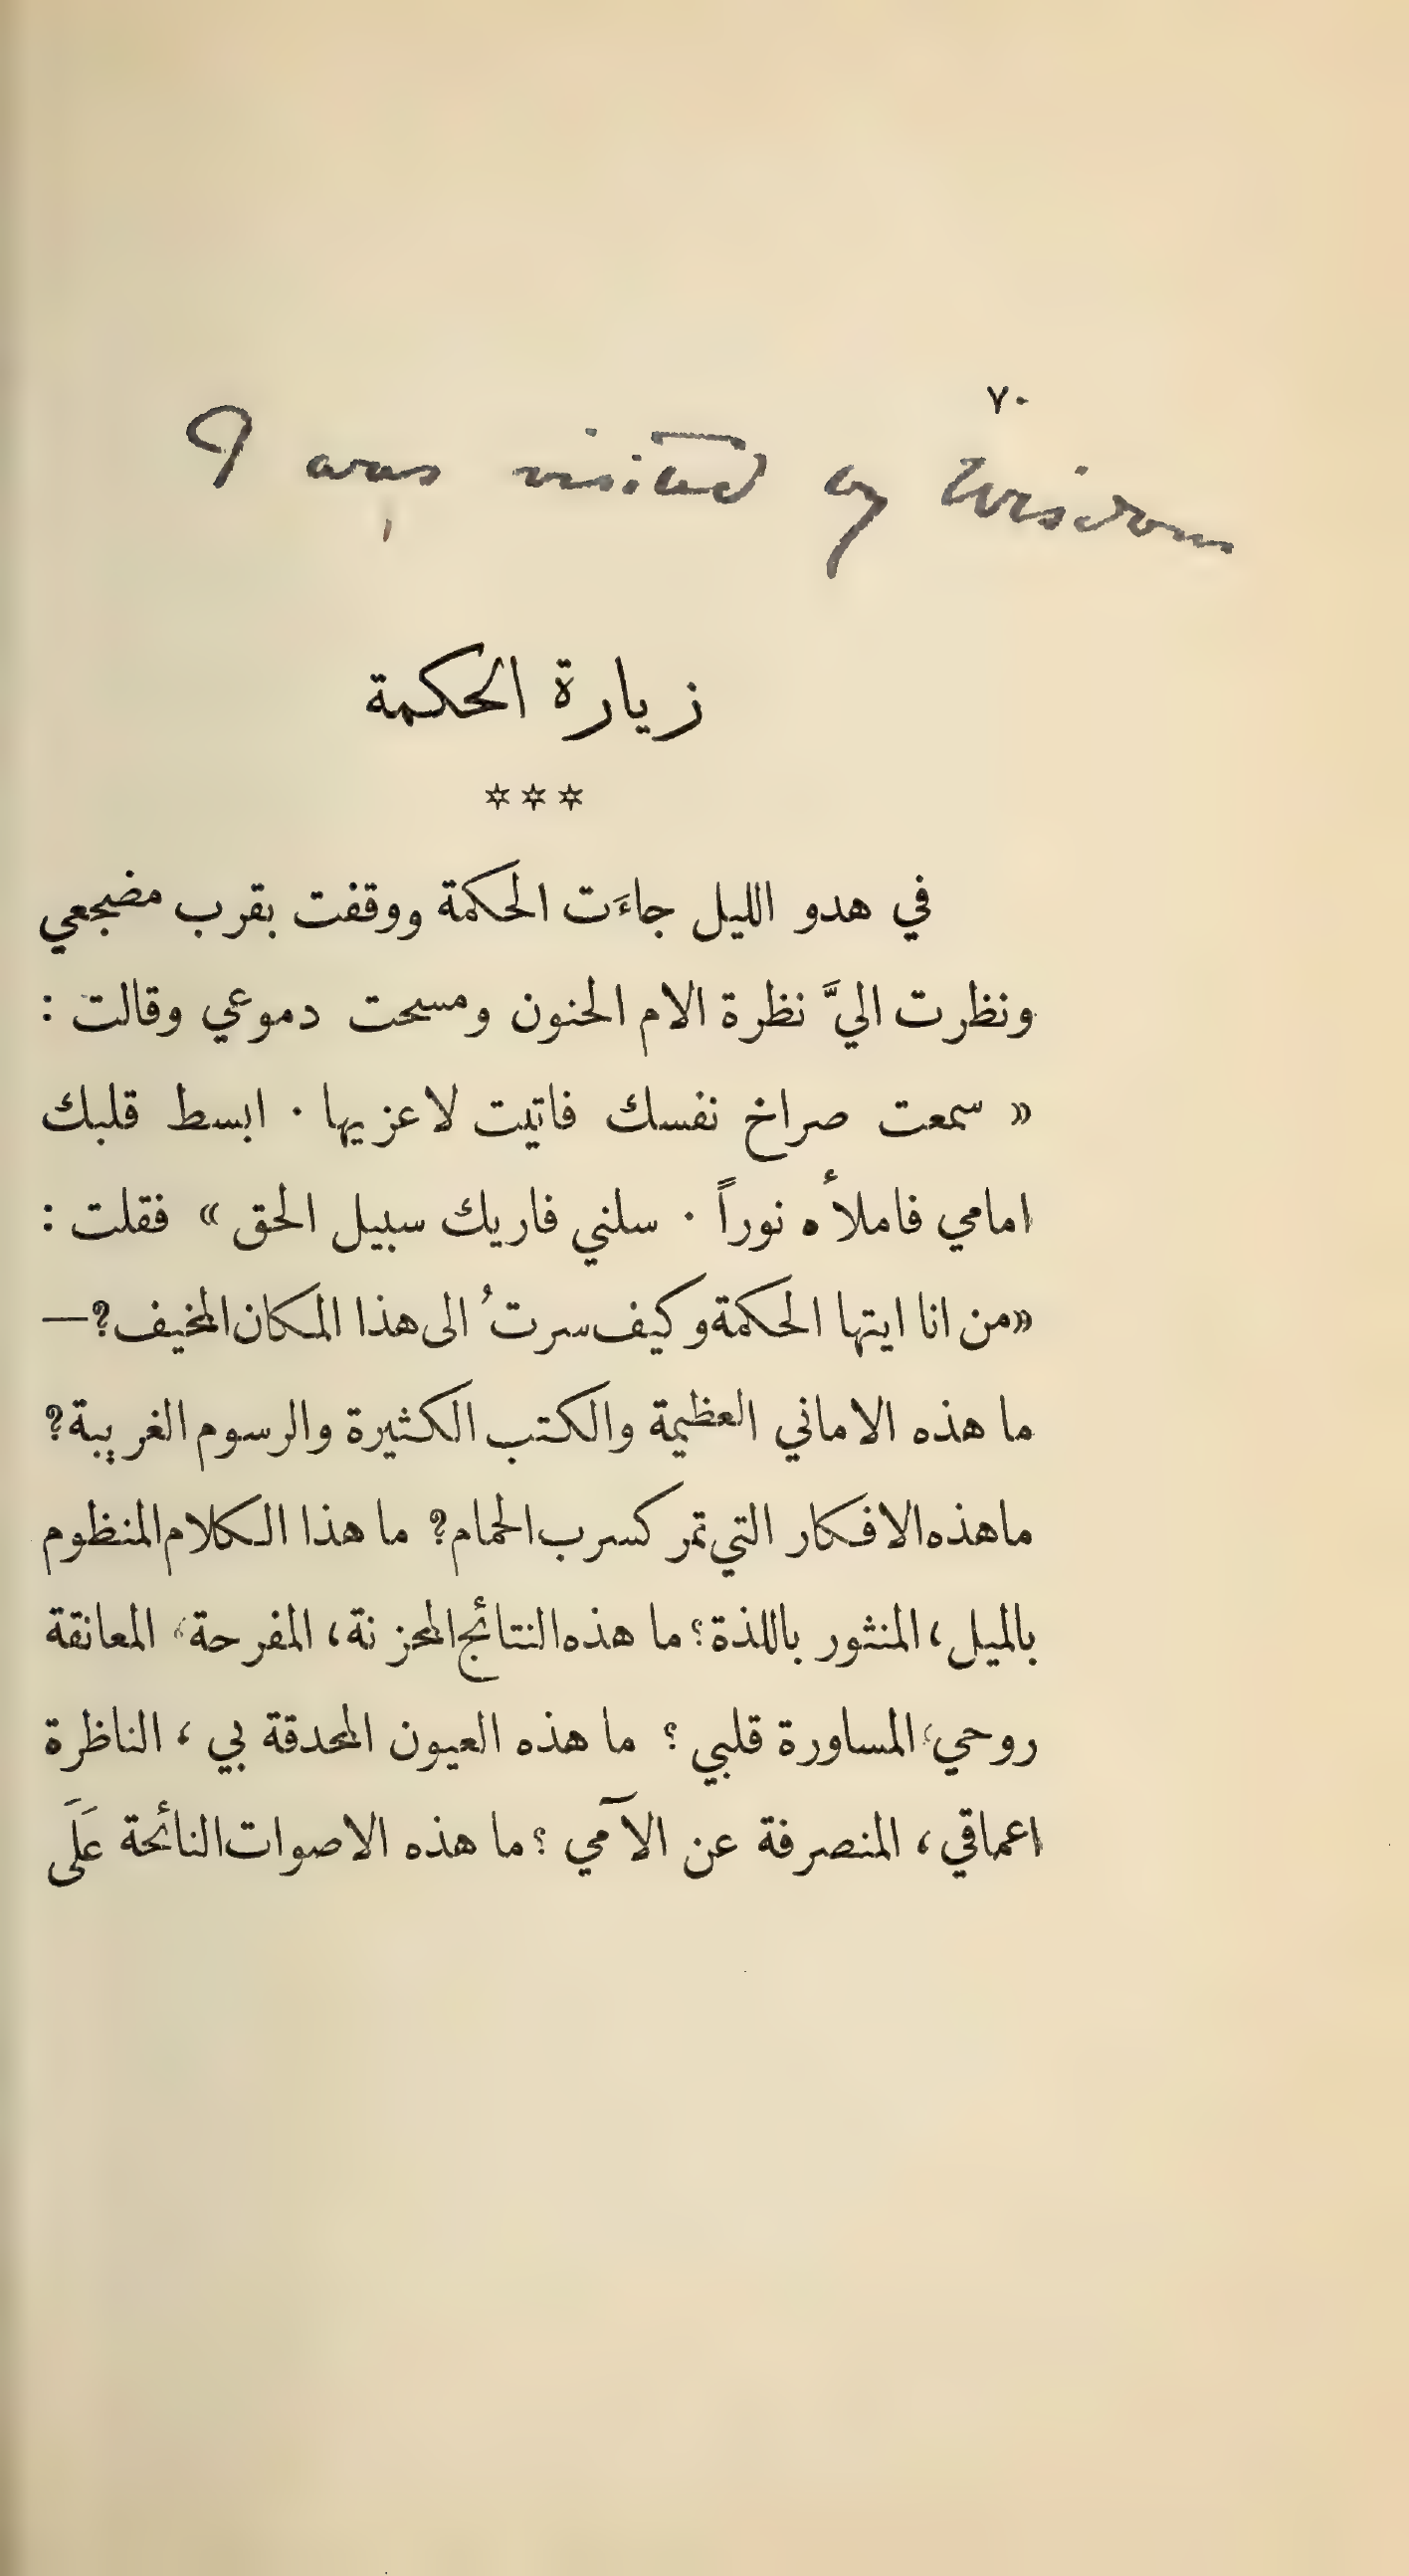 ٧٠
I was visited by Wisdom
زيارة الحكمة
✡✡✡
في هدو الليل جاءَت الحكمة ووقفت بقرب مضجعي
ونظرت اليَّ نظرة الام الحنون ومسحت دموعي وقالت :
« سمعت صراخ نفسك فاتيت لاعزيها · ابسط قلبك
امامي فاملأه نوراً · سلني فاريك سبيل الحق » فقلت :
«من انا ايتها الحكمة وكيف سرتُ الى هذا المكان المخيف؟—
ما هذه الاماني العظيمة والكتب الكثيرة والرسوم الغريبة؟
ما هذه الافكار التي تمر كسرب الحمام؟ ما هذا الكلام المنظوم
بالميل، المنثور باللذة؟ ما هذه النتائج المحزنة، المفرحة، المعانقة
روحي، المساورة قلبي ؟ ما هذه العيون المحدقة بي ، الناظرة
اعماقي ، المنصرفة عن الآمي ؟ ما هذه الاصوات النائحة عَلَى